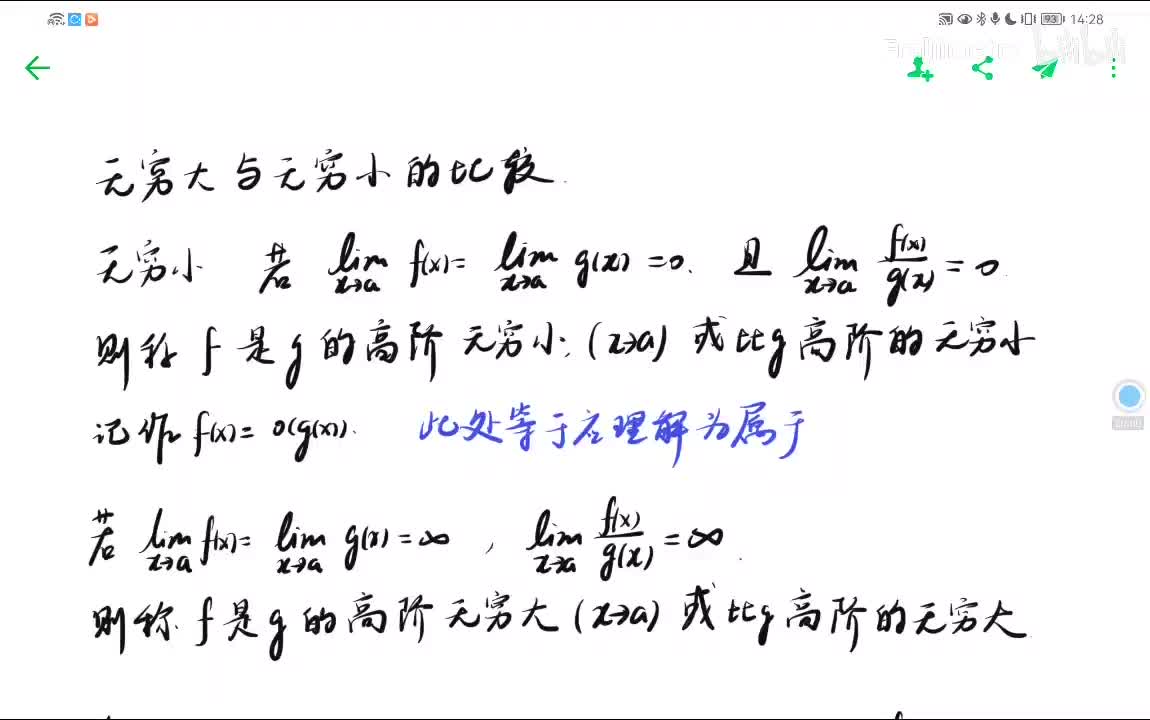 93 14:28
bilibili
无穷大与无穷小的比较.
无穷小 若 lim x→a f(x) = lim x→a g(x) = 0. 且 lim x→a f(x)/g(x) = 0.
则称 f 是 g 的高阶无穷小.(x→a) 或比g高阶的无穷小
记作 f(x) = o(g(x)). 此处等于应理解为属于
若 lim x→a f(x) = lim x→a g(x) = ∞ , lim x→a f(x)/g(x) = ∞.
则称 f 是 g 的高阶无穷大 (x→a) 或比g高阶的无穷大